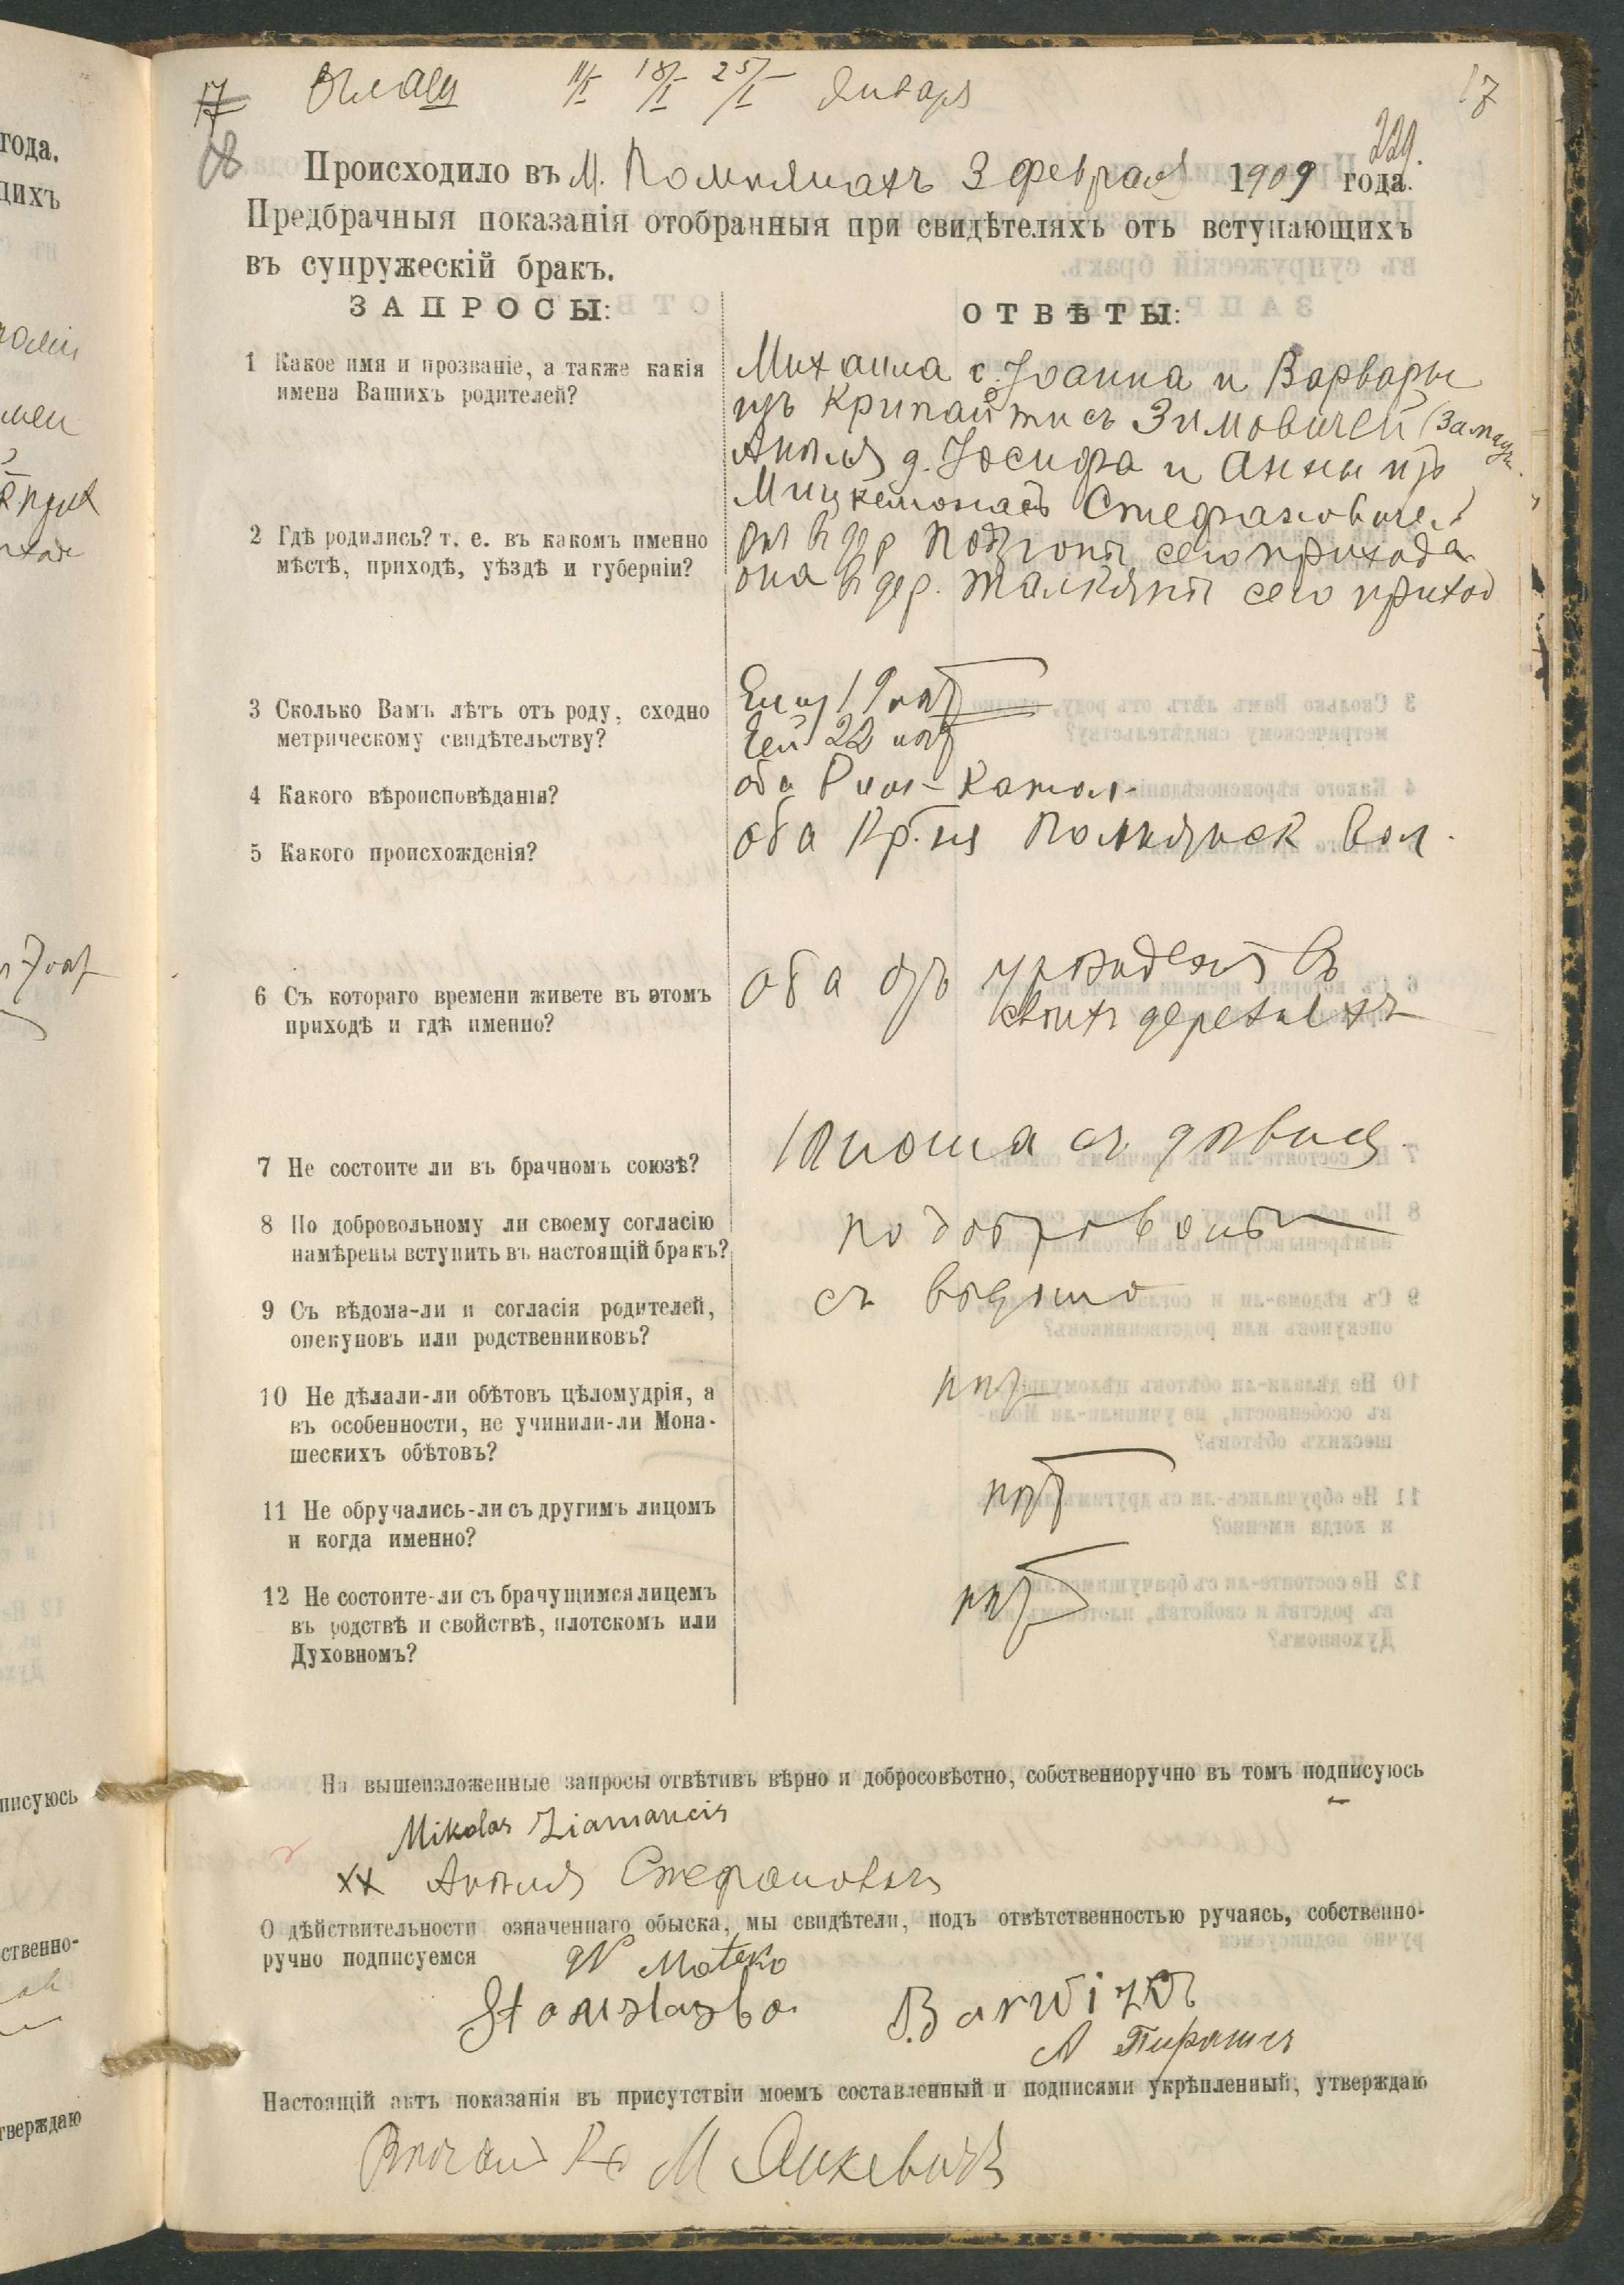 17 11/I 18/I 25/I Января 17
229.
Происходило въ М. Помпянахъ 3 февраля 1909 года.
Предбрачныя показанія отобранныя при свидѣтеляхъ отъ вступающихъ
въ супружескій бракъ.
ЗАПРОСЫ:
ОТВѢТЫ:
1 Какое имя и прозваніе, а также какія
имена Вашихъ родителей?
Михаила с. Іоанна и Варвары
изъ Зимовичей
д. Іосифа и Анны изъ
Стефановичей
2 Гдѣ родились? т. е. въ какомъ именно
мѣстѣ, приходѣ, уѣздѣ и губерніи?
въ дер сего прихода
она въ дер. сего приход
3 Сколько Вамъ лѣтъ отъ роду, сходно
метрическому свидѣтельству?
Ему 19 лѣт
Ей 22 лѣт
4 Какого вѣроисповѣданія?
оба Рим-Катол.
5 Какого происхожденія?
оба Кр.не Помпянск вол.
6 Съ котораго времени живете въ этомъ
приходѣ и гдѣ именно?
оба отъ рожденія въ
своихъ деревняхъ
7 Не состоите ли въ брачномъ союзѣ?
Юноша съ дѣвицей
8 По добровольному ли своему согласію
намѣрены вступить въ настоящій бракъ?
по добровольн
9 Съ вѣдома-ли и согласія родителей,
опекуновъ или родственниковъ?
съ вѣдома
10 Не дѣлали-ли обѣтовъ цѣломудрія, а
въ особенности, не учинили-ли Мона-
шескихъ обѣтовъ?
нѣт
11 Не обручались-ли съ другимъ лицомъ
и когда именно?
нѣт
12 Не состоите-ли съ брачущимся лицемъ
въ родствѣ и свойствѣ, плотскомъ или
Духовномъ?
нѣт
На вышеизложенные запросы отвѣтивъ вѣрно и добросовѣстно, собственноручно въ томъ подписуюсь
Mikolas Ziamancis
xx Стефановичъ
О дѣйствительности означеннаго обыска, мы свидѣтели, подъ отвѣтственностью ручаясь, собственно-
ручно подписуемся W Mateko
А
Настоящій актъ показанія въ присутствіи моемъ составленный и подписями укрѣпленный, утверждаю
Кс М Янкевичъ